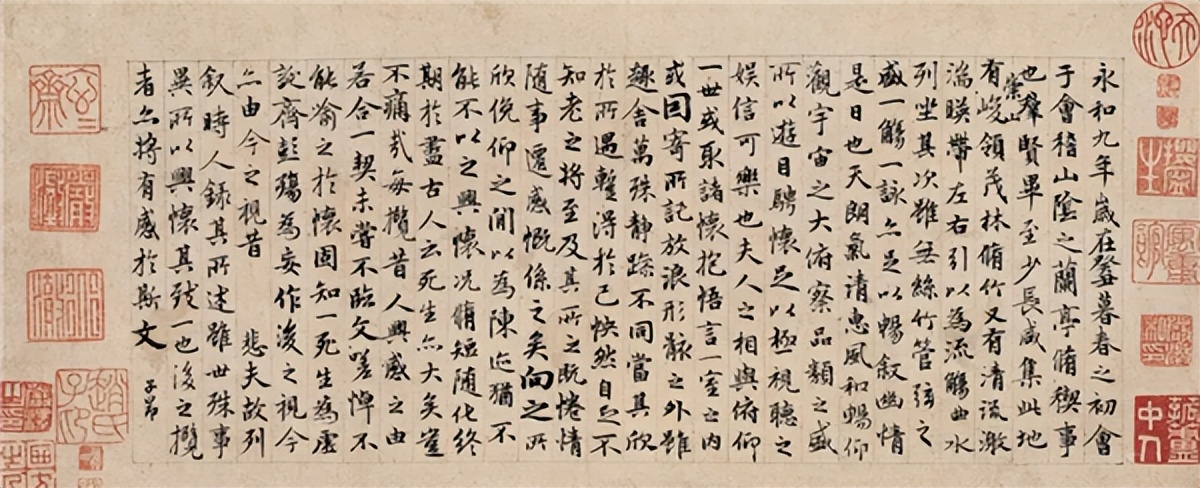 永和九年歲在癸丑暮春之初會
于會稽山陰之蘭亭脩稧事
也羣賢畢至少長咸集此地
有崇山峻領茂林脩竹又有清流激
湍暎帶左右引以為流觴曲水
列坐其次雖無絲竹管弦之
盛一觴一詠亦足以暢敘幽情
是日也天朗氣清惠風和暢仰
觀宇宙之大俯察品類之盛
所以遊目騁懷足以極視聽之
娛信可樂也夫人之相與俯仰
一世或取諸懷抱悟言一室之內
或因寄所託放浪形骸之外雖
趣舍萬殊靜躁不同當其欣
於所遇暫得於己怏然自足不
知老之將至及其所之既惓情
隨事遷感慨係之矣向之所
欣俛仰之閒以為陳迹猶不
能不以之興懷況脩短隨化終
期於盡古人云死生亦大矣豈
不痛哉每攬昔人興感之由
若合一契未嘗不臨文嗟悼不
能喻之於懷固知一死生為虛
誕齊彭殤為妄作後之視今
亦由今之視昔 悲夫故列
敘時人錄其所述雖世殊事
異所以興懷其致一也後之攬
者亦將有感於斯文
子昂
趙氏子昂